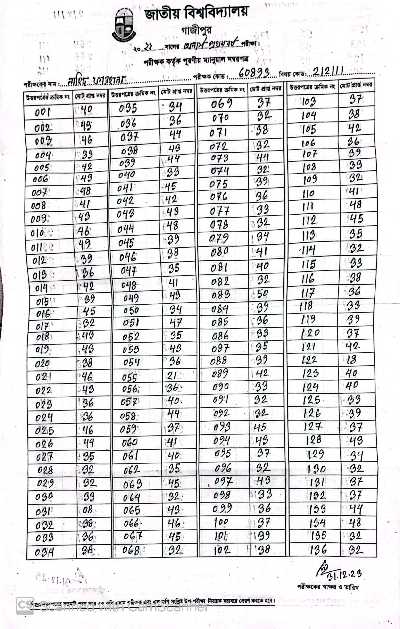 জাতীয় বিশ্ববিদ্যালয়
গাজীপুর
পরীক্ষক কর্তৃক পূরণীয় ম্যানুয়াল নম্বরপত্র
পরীক্ষকের নাম: পরীক্ষক কোড: 60893 বিষয় কোড: 212111
উত্তরপত্রের ক্রমিক নং মোট প্রাপ্ত নম্বর উত্তরপত্রের ক্রমিক নং মোট প্রাপ্ত নম্বর উত্তরপত্রের ক্রমিক নং মোট প্রাপ্ত নম্বর উত্তরপত্রের ক্রমিক নং মোট প্রাপ্ত নম্বর
001 40 035 34 069 37 103 37
002 43 036 36 070 32 104 38
003 46 037 44 071 38 105 42
004 33 038 43 072 32 106 36
005 42 039 44 073 44 107 39
006 43 040 33 074 32 108 33
007 48 041 45 075 39 109 32
008 41 042 42 076 36 110 41
009 43 043 43 077 33 111 48
010 46 044 48 078 32 112 45
011 49 045 39 079 34 113 35
012 39 046 38 080 41 114 32
013 36 047 35 081 40 115 33
014 42 048 41 082 32 116 38
015 39 049 43 083 50 117 36
016 45 050 34 084 39 118 33
017 32 051 47 085 36 119 39
018 43 052 35 086 33 120 37
019 43 053 43 087 35 121 42
020 38 054 36 088 39 122 18
021 46 055 21 089 42 123 40
022 43 056 36 090 33 124 40
023 36 057 40 091 32 125 33
024 36 058 44 092 32 126 39
025 46 059 37 093 45 127 37
026 44 060 41 094 43 128 43
027 35 061 40 095 37 129 34
028 32 062 35 096 32 130 32
029 32 063 45 097 43 131 37
030 33 064 32 098 33 132 37
031 08 065 43 099 36 133 44
032 38 066 46 100 37 134 48
033 36 067 45 101 39 135 32
034 38 068 32 102 38 136 32
31.12.23
পরীক্ষকের স্বাক্ষর ও তারিখ